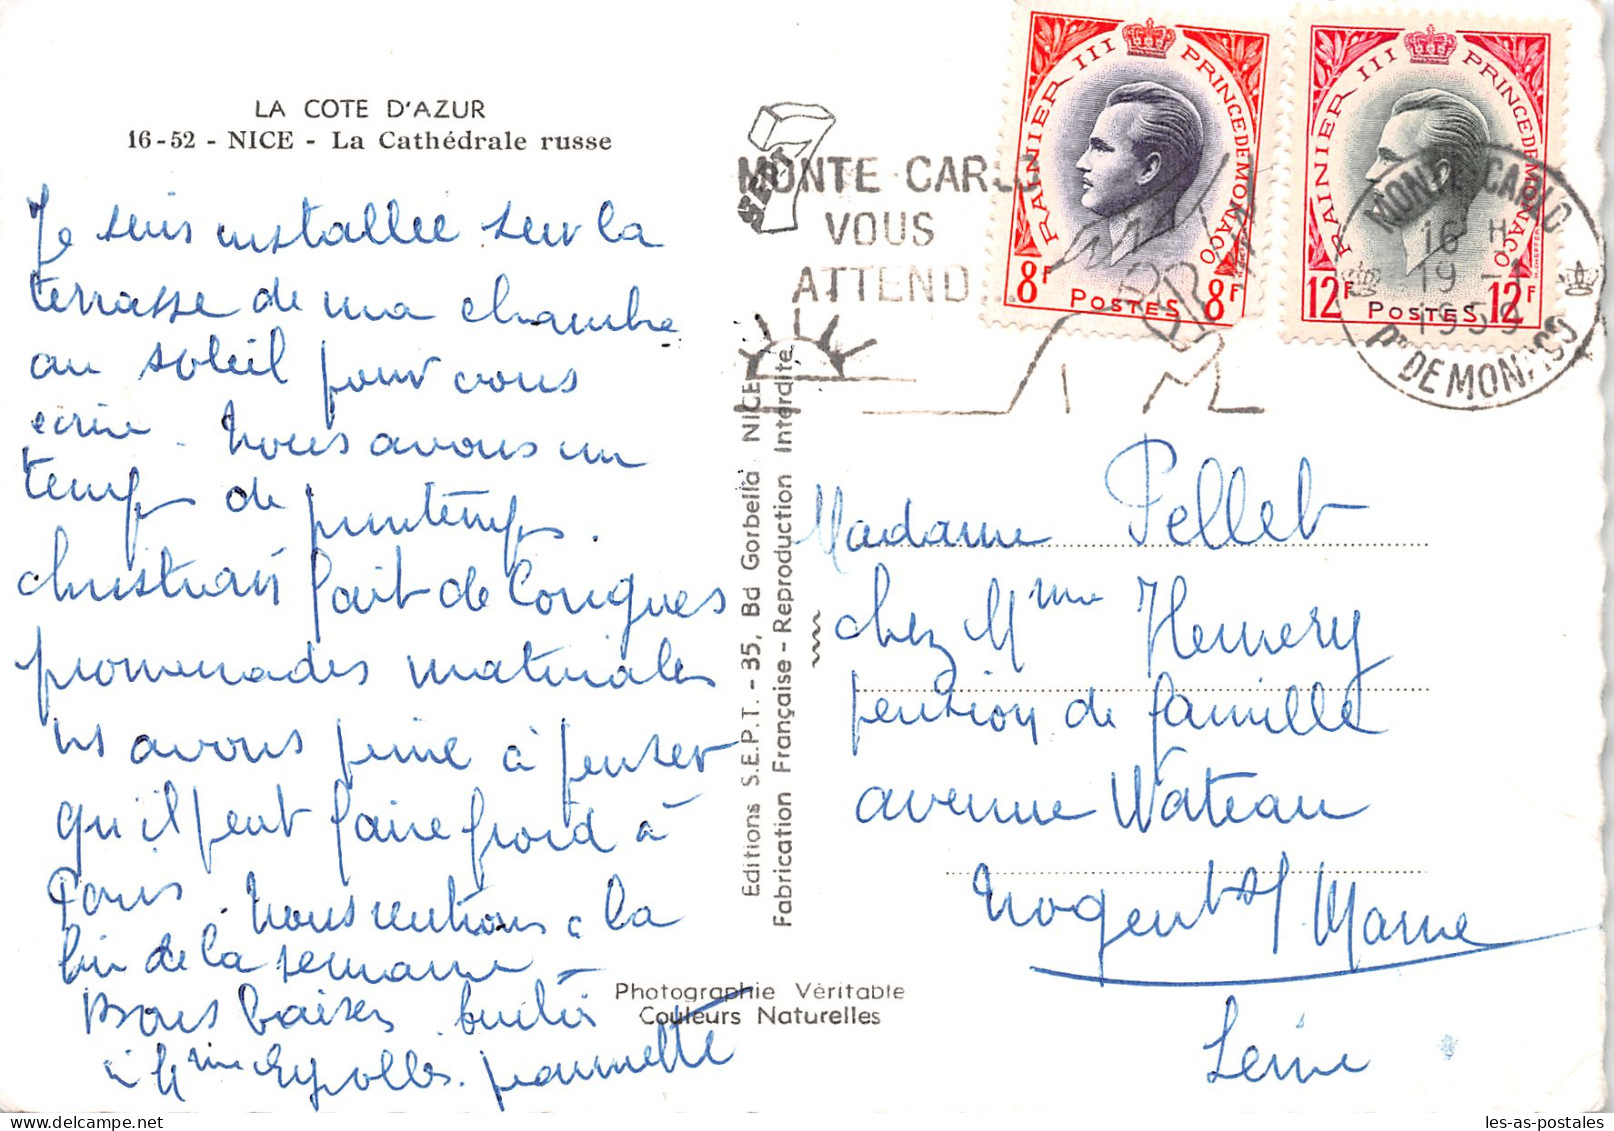 LA COTE D'AZUR
16-52 - NICE - La Cathédrale russe
Je suis installée sur la
terrasse de ma chambre
au soleil pour vous
écrire. Nous avons un
temps de printemps.
Christian fait de longues
promenades matinales
ns avons peine à penser
qu'il peut faire froid à
Paris. Nous rentrons à la
fin de la semaine
Bons baisers
à Mme jeannette
SEPT
MONTE-CARLO
VOUS
ATTEND
RAINIER III PRINCE DE MONACO
8F POSTES 8F
RAINIER III PRINCE DE MONACO
12F POSTES 12F
MONTE-CARLO
16 H
19 -
1959
Pté DE MONACO
Editions S.E.P.T. - 35, Bd Gorbella NICE
Fabrication Française - Reproduction Interdite
Madame Pellet
chez Mme Hemery
pension de famille
avenue Wateau
Nogent s/ Marne
Seine
Photographie Véritable
Couleurs Naturelles
les-as-postales